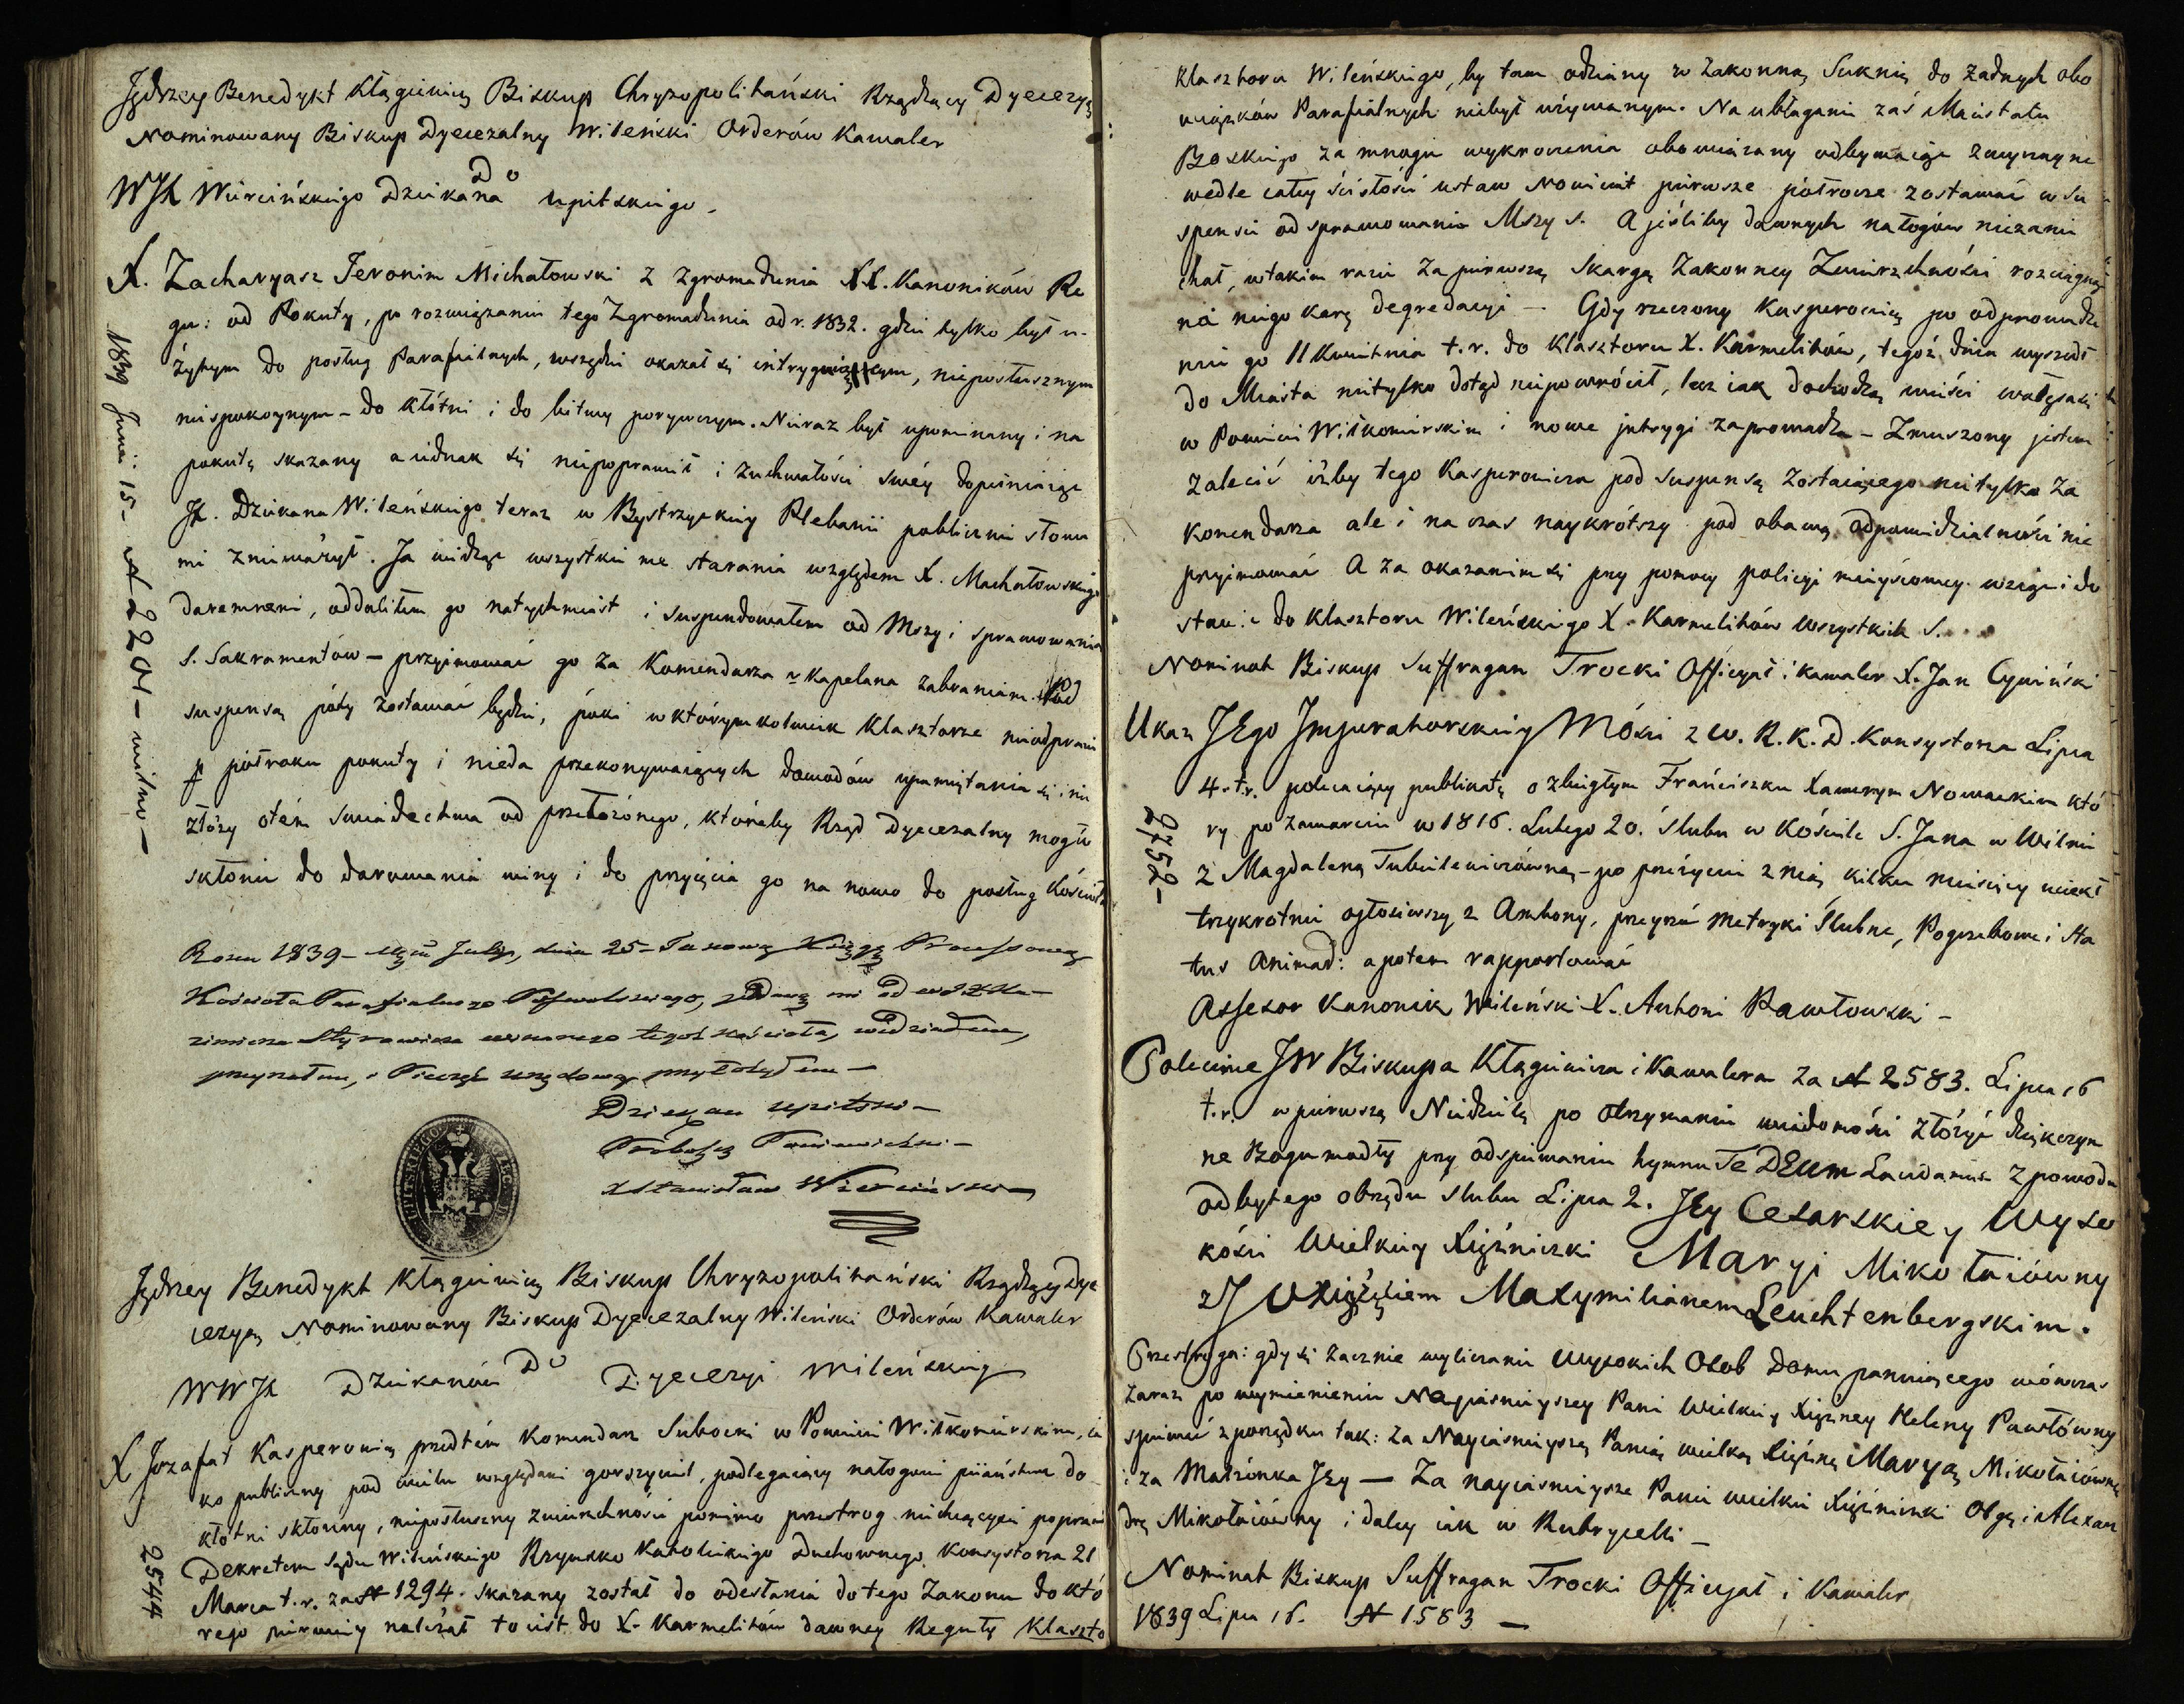 Jędrzey Benedykt Kłągiewicz Biskup Chryzopolitański Rządzący Dyecezyą
Nominowany Biskup Dyecezalny Wileński Orderów Kawaler
Do
WJX Wiercińskiego Dziekana Upitskiego.
X. Zacharyasz Jeronim Michałowski z Zgromadzenia XX. Kanoników Re
gu: od Pokuty, po rozwiązaniu tego Zgromadzenia od r. 1832. gdzie tylko był u-
żytym do posług Parafialnych, wszędzie okazał się intryguiącym, nieposłusznym
niespokoynym – do kłótni i do bitwy porywczym. Nieraz był upominany i na
pokutę skazany a iednak się niepoprawił i zuchwałości swéy dopełniaiąc
JX. Dziekana Wileńskiego teraz w Bystrzyckiey Plebanii publicznie słowa
mi znieważył. Ja widząc wszystkie me starania względem X. Machałowskiego
daremnemi, oddaliłem go natychmiast i suspendowałem od Mszy i sprawowania
S. Sakramentów – przyimować go za Komendarza v Kapelana zabraniam. Pod
suspensą póty zostawać będzie, póki w którymkolwiek Klasztorze nieodprawi
półroku pokuty i nieda przekonywaiących dowodów upamiętania się i nie
złoży otém świadectwa od przełożonego, któreby Rząd Dyecezalny mogło
skłonić do darowania winy i do przyięcia go na nowo do posług Kościoła
1839 Junii 15 – N 2201 – Wilno –
Roku 1839 – Mca Julij, dnia 25 – Takową Księgę Processową
Kościoła Parafialnego
tegoż Kościoła, widziałem,
przeyrzałem, i Pieczęć urzędową przyłożyłem –
Dziekan Upitski –
Proboszcz Poniewiezki –
X Stanisław Wierciński
Jędrzey Benedykt Kłągiewicz Biskup Chryzopolitański Rządzący Dye
cezyą Nominowany Biskup Dyecezalny Wileński Orderów Kawaler
Do
WWJX Dziekanów Dyecezyi Wileńskiey
X Jozafat Kasperowicz przedtém Komendarz Subocki w Powiecie Wiłkomirskim, ia
ko publiczny pod wielu względami gorszyciel, podlegaiący nałogowi piiaństwa do
kłótni skłonny, nieposłuszny zwierzchności pomimo przestrog niechcącyi poprawi
Dekretem Sądu Wileńskiego Rzymsko Katolickiego Duchownego Konsystorza 21
Marca t.r. za N 1294. skazany został do odesłania do tego Zakonu do któ
rego pierwiey należał to iest do X. Karmelitów dawney Reguły Klaszto
2544
Klasztoru Wileńskiego, by tam odziany w Zakonną Suknią do żadnych obo
wiązków Parafialnych niebył używanym. Na ubłaganie zaś Maiestatu
Boskiego za mnogie wykroczenia obowiązany odbywaiąc
wedle całey ścisłości ustaw Nowiciat pierwsze półrocze zostawać w su
spensie od sprawowania Mszy S. A jeśliby dawnych nałogów niezanie
chał, w takim razie za pierwszą Skargą Zakonney Zwierzchności rozciągnąć
na niego karę degredacyi – Gdy rzeczony Kasperowicz po odprowadze
niu go 11 Kwietnia t.r. do Klasztoru X. Karmelitów, tegoż dnia wyszedł
do Miasta nietylko dotąd niepowrócił, lecz iak dochodzą wieści wałęsaiąc się
w Powiecie Wiłkomirskim i nowe intrygi zaprowadza – Zmuszony jestem
zalecić iżby tego Kasperowicza pod suspensą zostaiącego nietylko za
Komendarza ale i na czas naykrótszy pod obawą odpowiedzialności nie
przyimować A za okazaniem się przy pomocy policyi mieyscowey wziąć i do
stawić do Klasztoru Wileńskiego X. Karmelitów Wszystkich S.
Nominat Biskup Suffragan Trocki Officyał i Kawaler X. Jan Cywiński
Ukaz JEgo Imperatorskiey Mości z W. R. K. D. Konsystorza Lipca
4. t.r. polecaiący publikatę o zbiegłym Franciszku Xawerym Nowackim któ
ry po zawarciu w 1816. Lutego 20. ślubu w Kościele S. Jana w Wilnie
z Magdaleną Tubielewiczówną – po pożyciu z nią kilku miesięcy uciekł
trzykrotnie ogłosiwszy z Ambony, przeyrzéć Metryki Ślubne, Pogrzebowe i Sta
tus Animad: a potem rapportować
Assesor Kanonik Wileński X. Antoni Pawłowski –
2752 –
Polecenie JW Biskupa Kłągiewicza i Kawalera za N 2583. Lipca 16
t.r. w pierwszą Niedzielę po otrzymaniu wiadomości złożyć dziękczyn
ne Bogu modły przy odśpiewaniu hymnu Te DEum Laudamus z powodu
odbytego obrzędu ślubu Lipca 2. JEy Cesarskiey Wyso
kości Wielkiey Xiężniczki Maryi Mikołaiówny
z J O Xiążęciem Maxymilianem Leuchtenbergskim.
Przestroga: gdy się zacznie wyliczanie Wysokich Osób Domu panuiącego wówczas
zaraz po wymienieniu Nayiaśnieyszey Pani Wielkiey Xiężney Heleny Pawłówny
śpiewać z porządku tak: Za Nayiaśnieyszą Panią wielką Xiężnę Maryą Mikołaiównę
i za Małżonka Jey – Za nayiaśnieysze Panie wielkie Xiężniczki Olgę i Alexan
drę Mikołaiówny i daley iak w Rubrycelli –
Nominat Biskup Suffragan Trocki Officyał i Kawaler
1839 Lipca 16. N 1583 –